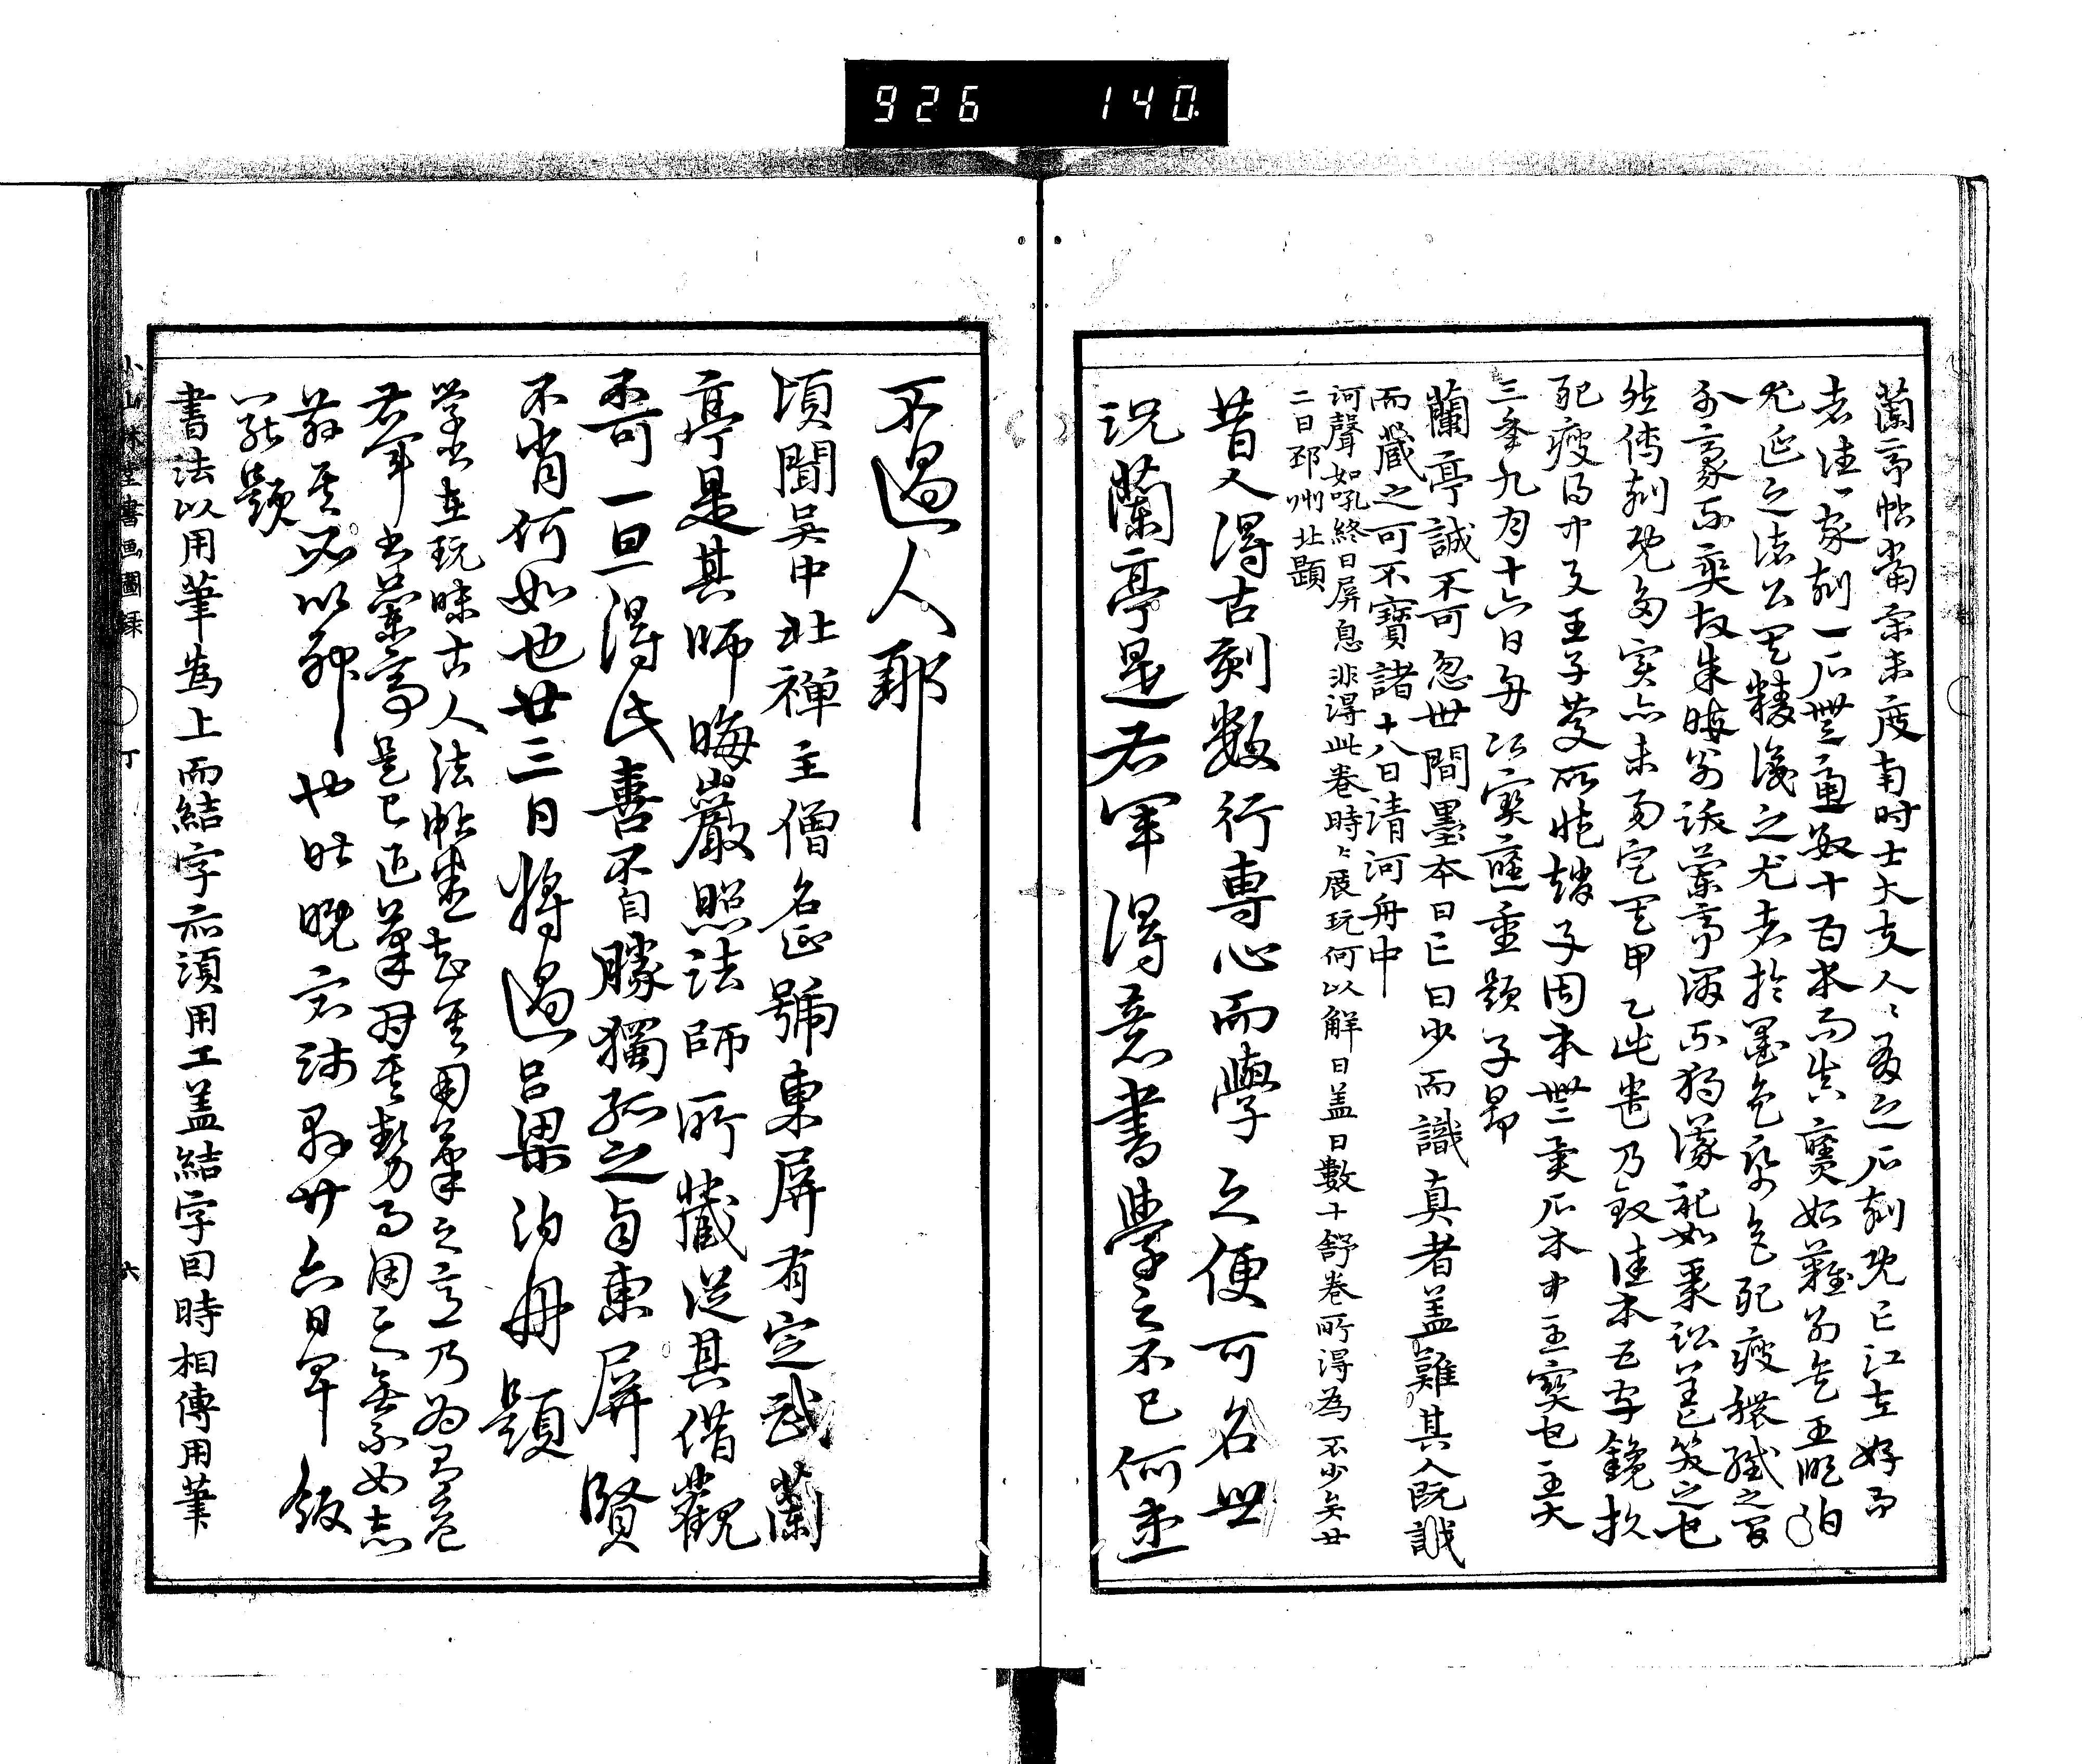 926 140
蘭亭帖當宋未度南時士大夫人々有之石刻既亡江左好事
者往々家刻一石無慮數十百本而真贗始難別矣王順伯
尤延之諸公其精識之尤者於墨色紙色肥瘦穠纖之間
分毫不爽故朱晦翁跋蘭亭謂不獨議禮如聚訟蓋笑之也
然傳刻既多實亦未易定其甲乙此卷乃致佳本五字鑱損
肥瘦得中與王子慶所藏趙子固本無異石本中至寶也至大
三年九月十六日舟次寶應重題子昂
蘭亭誠不可忽世間墨本日亡日少而識真者蓋難其人既識
而藏之可不寶諸十八日清河舟中
河聲如吼終日屏息非得此卷時々展玩何以解日蓋日數十舒卷所得為不少矣廿
二日邳州北題
昔人得古刻數行專心而學之便可名世
況蘭亭是右軍得意書學之不已何患
不過人耶
頃聞吳中北禪主僧名正號東屏有定武蘭
亭是其師晦巖照法師所藏從其借觀
不可一旦得此喜不自勝獨孤之與東屏賢
不肖何如也廿三日將過呂梁泊舟題
學書在玩味古人法帖悉知其用筆之意乃為有益
右軍書蘭亭是已退筆因其勢而用之無不如志
茲其所以神也昨晚宿沛縣廿六日早飯
罷題
書法以用筆為上而結字亦須用工蓋結字因時相傳用筆
小山林堂書画圖録 丁 六